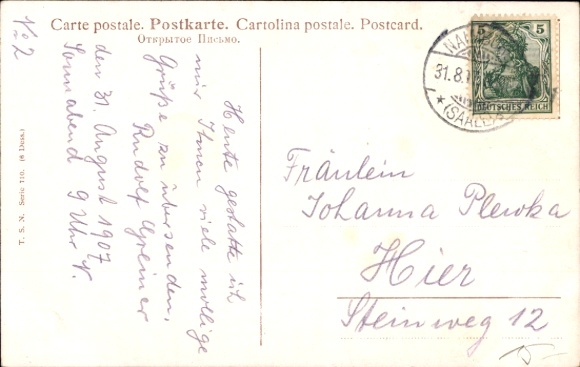 Carte postale. Postkarte. Cartolina postale. Postcard.
Открытое Письмо.
No 2
Heute gestatte ich
mir Ihnen viele mollige
Grüße zu übersenden,
Rudolf Greiner
den 31. August 1907
Sonnabend 9 Uhr N.
T. S. N. Serie 110. (6 Dess.)
NA
31.8.
* (SAALE)
5 5
DEUTSCHES REICH
Fräulein
Johanna Plewka
Hier
Steinweg 12
15-